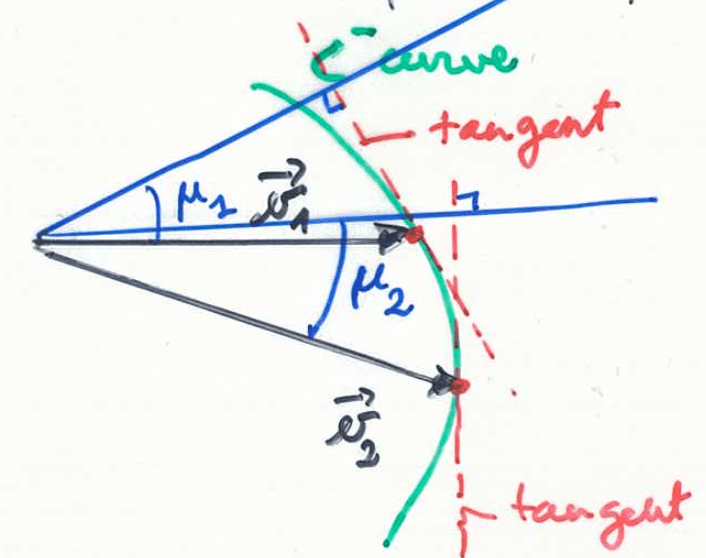 C⁻ curve
tangent
μ₁
v⃗₁
μ₂
v⃗₂
tangent